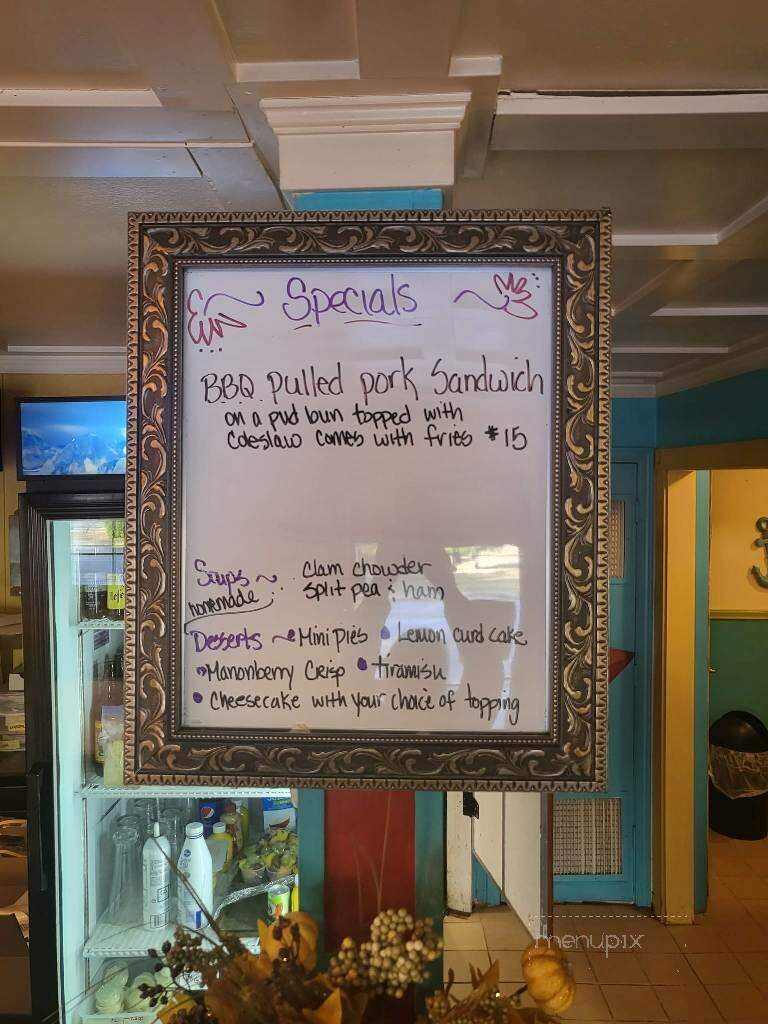 Specials
BBQ Pulled pork Sandwich
on a pud bun topped with
Coleslaw comes with fries $15
Soups ~ Clam chowder
homemade Split pea & ham
Desserts ~ • Mini Pies • Lemon curd cake
• Marionberry Crisp • Tiramisu
• Cheesecake with your choice of topping
menupix